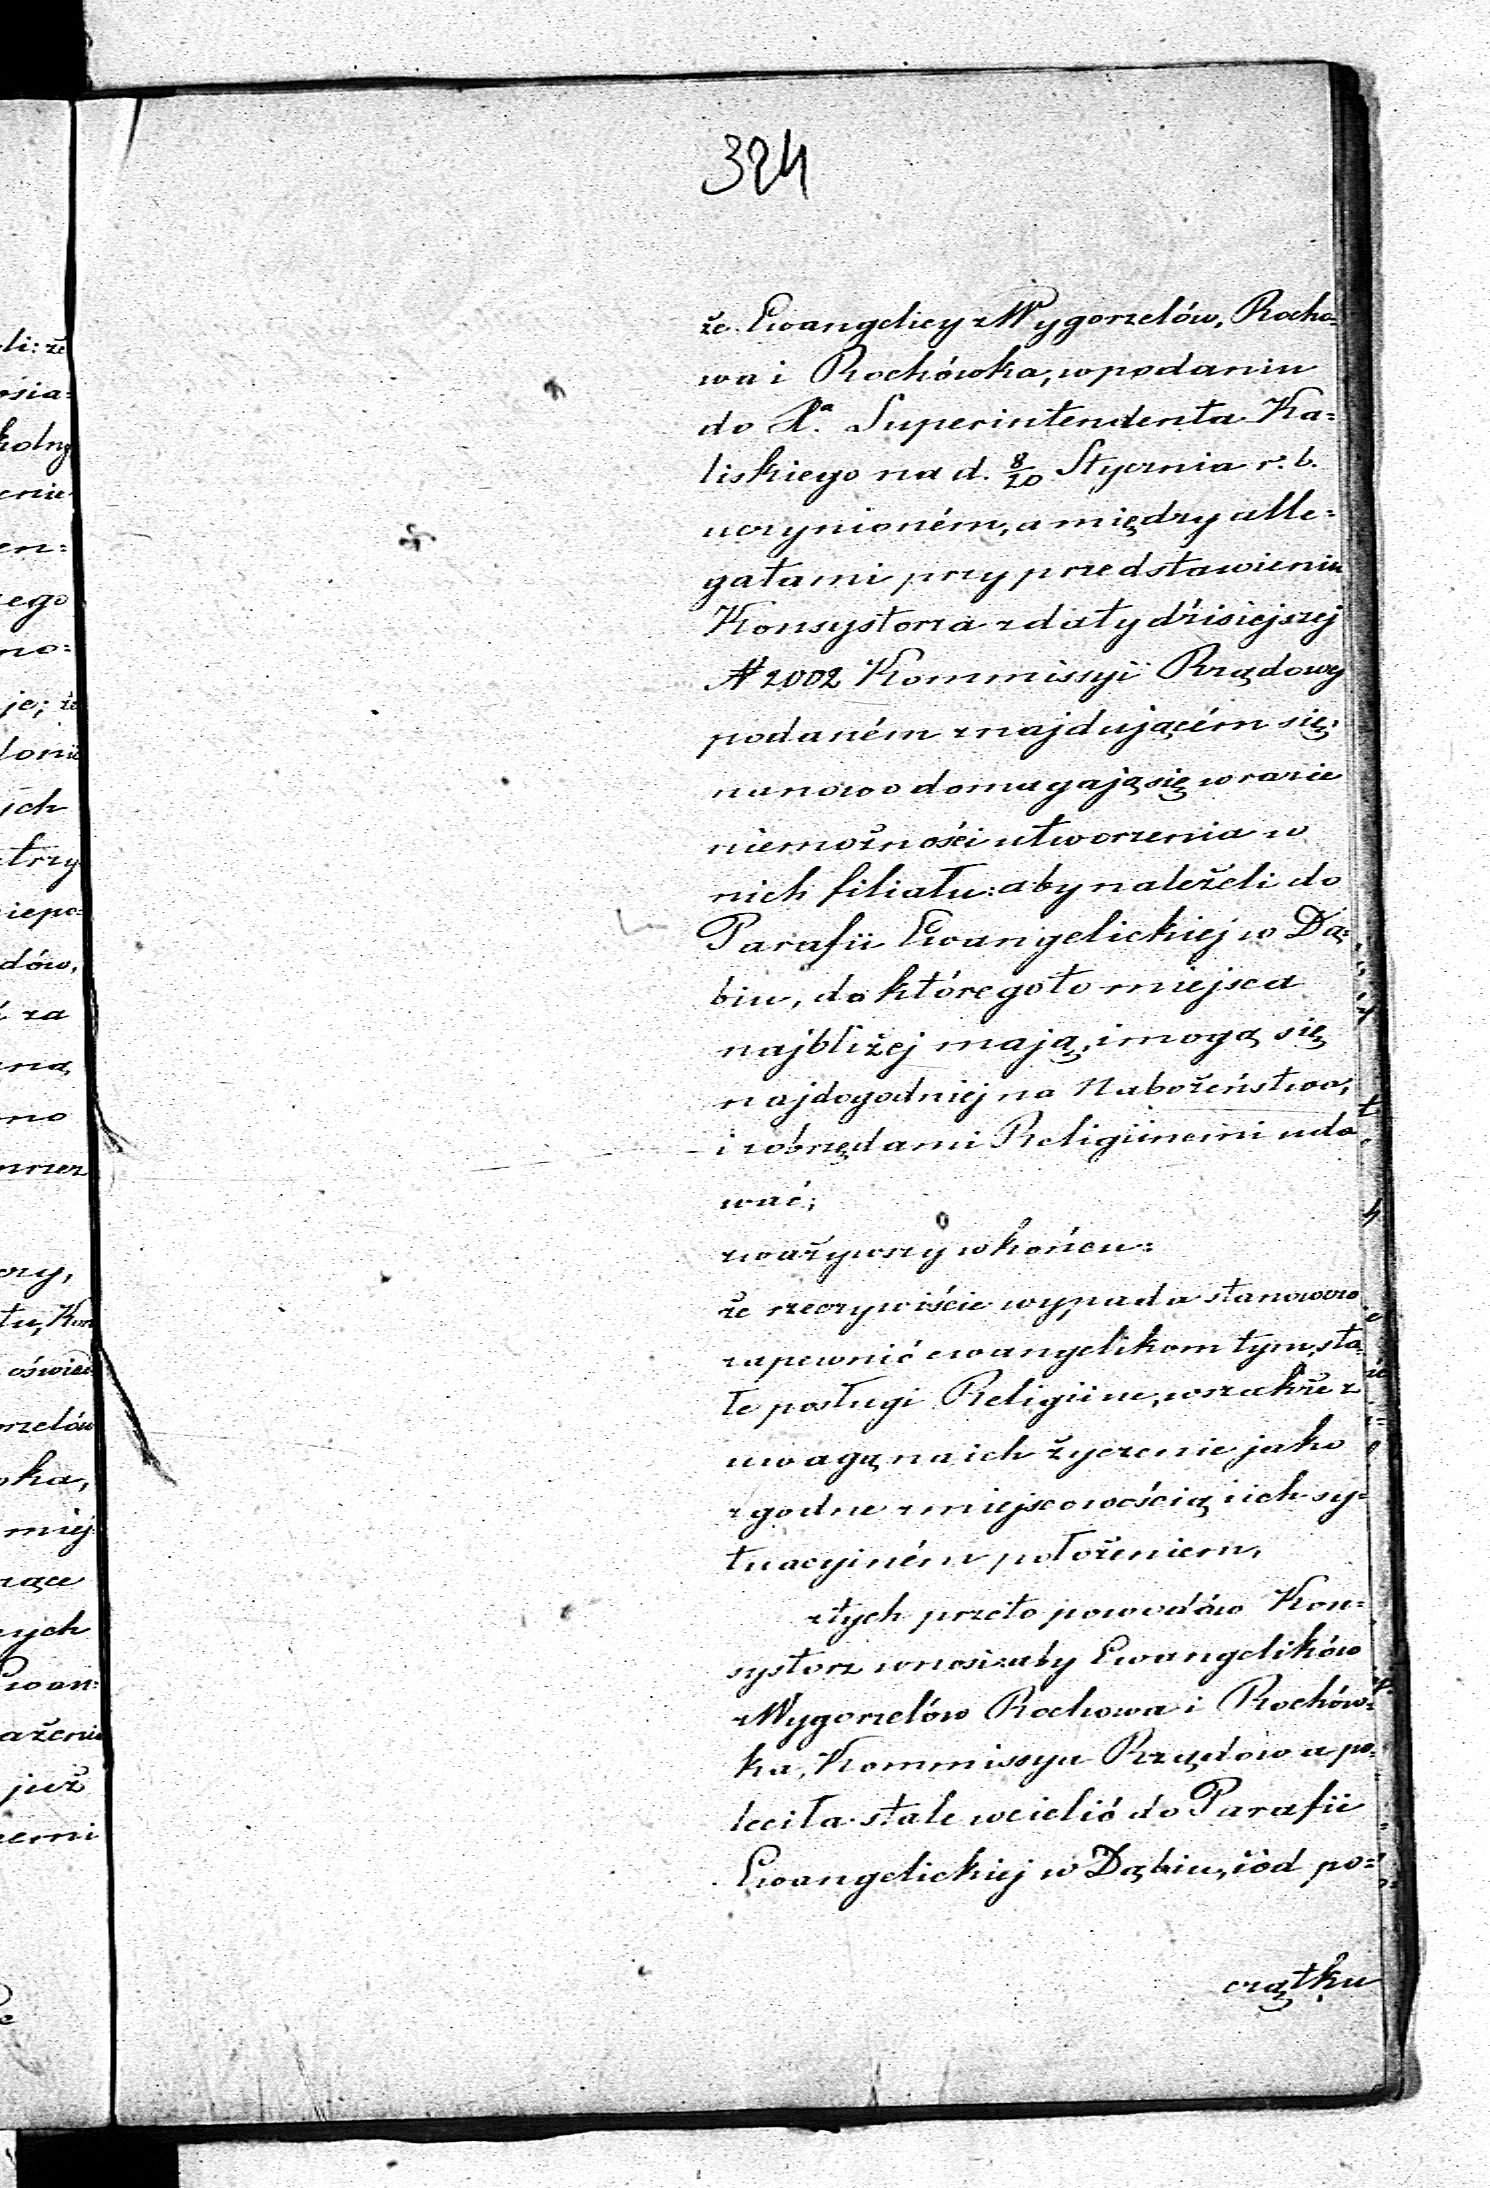 324
że Ewangelicy z Wygorzelów, Rocho=
wa i Rochówka, w podaniu
do Xa. Superintendenta Ka=
liskiego na d. 8/20 Stycznia r. b.
uczynioném, a między alle=
gatami przy przedstawieniu
Konsystorza z daty dzisiejszej
N 2002 Kommissyi Rządowej
podaném znajdującém się,
na nowo domagają się w razie
niemożności utworzenia w
nich filiału: aby należeli do
Parafii Ewangelickiej w Dą=
biu, do którego to miejsca
najbliżej mają, i mogą się
najdogodniej na Nabożeństwo,
i z obrzędami Religiinemi uda
wać;
zważywszy w końcu:
że rzeczywiście wypada stanowczo
zapewnić ewangelikom tym, sta
łe posługi Religiine, wszakże z
uwagą na ich życzenie jako
zgodne z miejscowością i ich sy=
tuacyjném położeniem,
z tych przeto powodów Kon=
systorz wnosi: aby Ewangelików
z Wygorzelów Rochowa i Rochów=
ka, Kommissya Rządowa po=
leciła stale wcielić do Parafii
Ewangelickiej w Dąbiu, i od po=
czątku
li: że
osia=
kolny
enie
en=
ego
no=
je; że
lonii
ych
trzy
iepo=
dów,
za
ną
no
przez
czy,
tu, Kon
oświad
rzelów
ka,
miej
rące
nych
Ewan=
ażenia
już
nemi